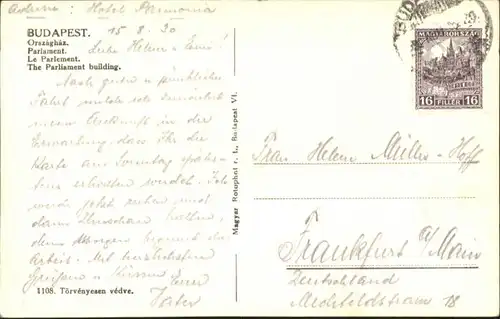 Adresse: Hotel Pannonia
15/8.30
BUDAPEST.
Országház.
Parlament.
Le Parlement.
The Parliament building.
Liebe Helen u Erni!
Nach guter u pünktlicher
Fahrt melde
meine Ankunft in der
Erwartung, dass Ihr die
Karte am Sonntag
erhalten werdet. Ich
werde jetzt ruhen und
dann Umschau halten,
denn Morgen beginnt die
Arbeit. Mit herzlichsten
Grüßen u Küssen Euer
Vater
1108. Törvényesen védve.
Magyar Rotophot r. t., Budapest VI.
BUDA
MAGYARORSZÁG
16 FILLÉR 16
Frau Helene Müller-Hopf
Frankfurt a/Main
Deutschland
18